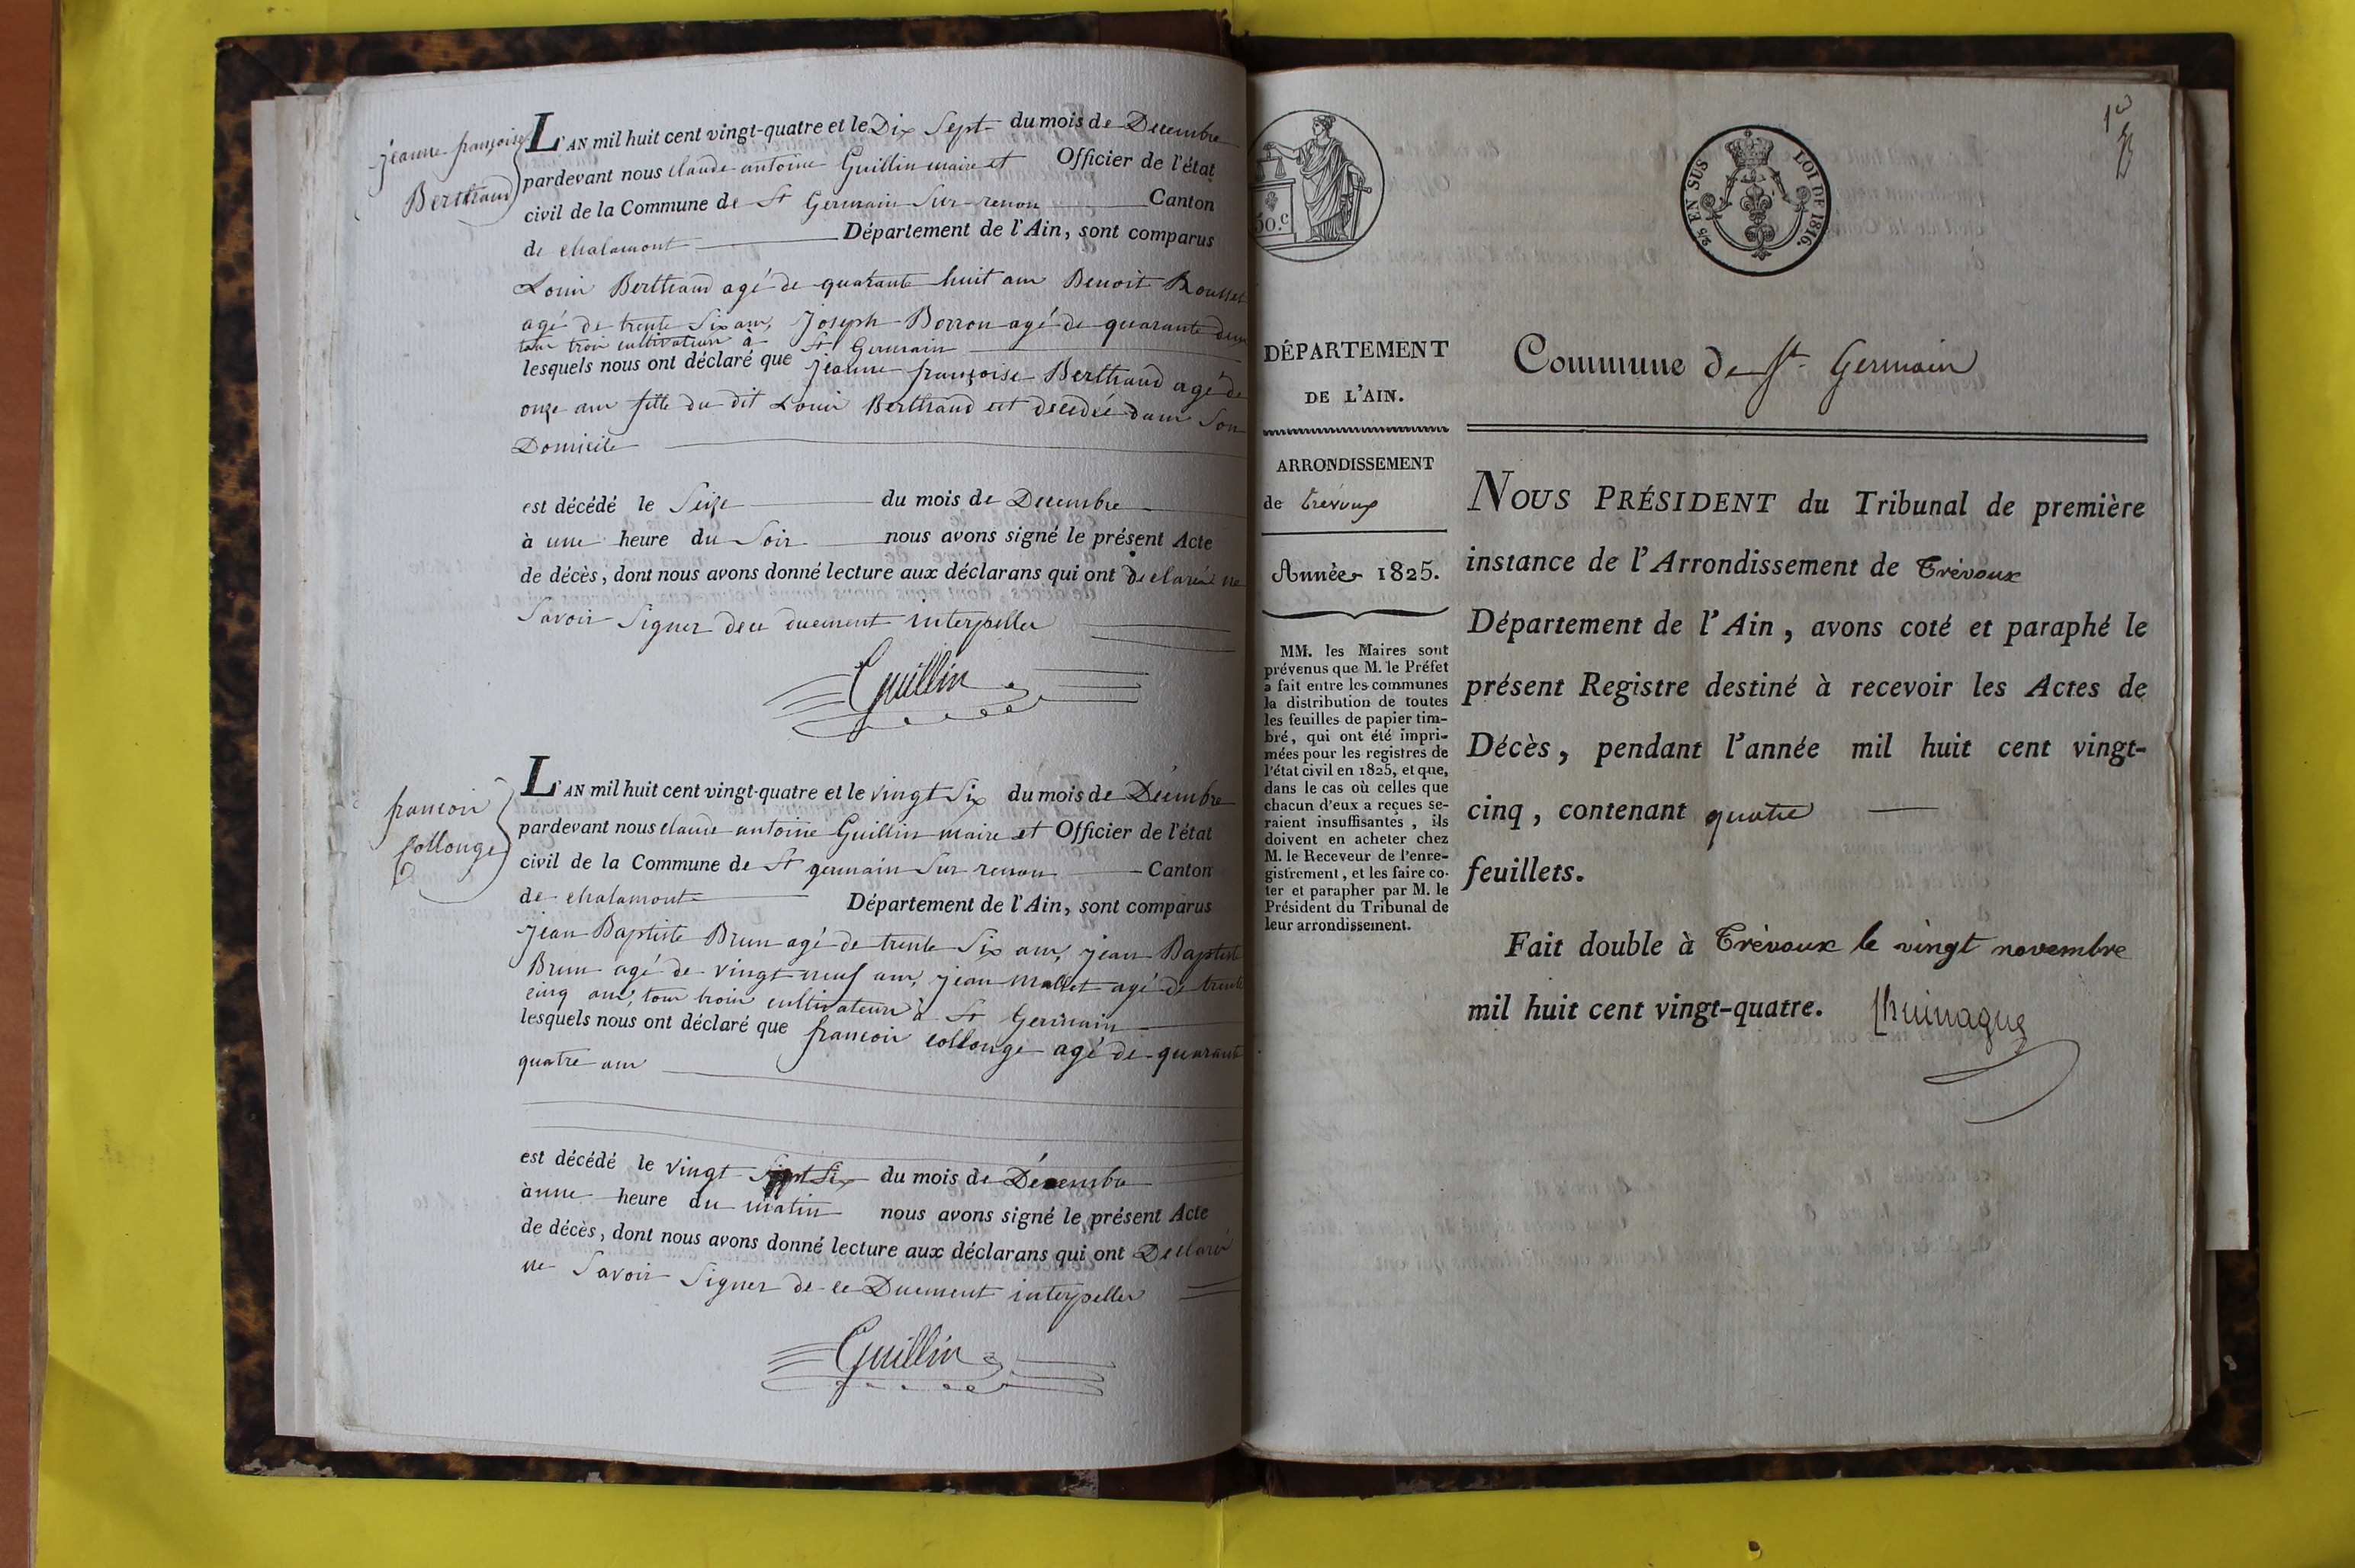 jeanne françoise
Berthaud
L'AN mil huit cent vingt-quatre et le Dix Sept du mois de Decembre
pardevant nous claude antoine Guillin maire et Officier de l'état
civil de la Commune de St Germain Sur renon Canton
de chalamont Département de l'Ain, sont comparus
Louis Berthaud agé de quarante huit ans Benoit Rousset
agé de trente Six ans, Joseph Borron agé de quarante deux
tous trois cultivateurs à St Germain
lesquels nous ont déclaré que jeanne françoise Berthaud agé de
onze ans fille du dit Louis Berthaud est decedée dans Son
Domicile
est décédé le Seize du mois de Decembre
à une heure du Soir nous avons signé le présent Acte
de décès, dont nous avons donné lecture aux déclarans qui ont declarés ne
Savoir Signer de ce duement interpelles
Guillin
francois
Collonge
L'AN mil huit cent vingt-quatre et le vingt Six du mois de Décembre
pardevant nous claude antoine Guillin maire et Officier de l'état
civil de la Commune de St germain Sur renon Canton
de chalamont Département de l'Ain, sont comparus
jean Baptiste Brun agé de trente Six ans, jean Baptiste
Brun agé de vingt neuf ans, jean Mallet agé de trente
cinq ans, tous trois cultivateurs à St Germain
lesquels nous ont déclaré que francois collonge agé de quarante
quatre ans
est décédé le vingt Six du mois de Décembre
à une heure du matin nous avons signé le présent Acte
de décès, dont nous avons donné lecture aux déclarans qui ont Declaré
ne Savoir Signer de ce Duement interpelles
Guillin
50.c
2/5 EN SUS LOI DE 1816.
1er
DÉPARTEMENT
DE L'AIN.
ARRONDISSEMENT
de trévoux
Année 1825.
MM. les Maires sont
prévenus que M. le Préfet
a fait entre les communes
la distribution de toutes
les feuilles de papier tim-
bré, qui ont été impri-
mées pour les registres de
l'état civil en 1825, et que,
dans le cas où celles que
chacun d'eux a reçues se-
raient insuffisantes, ils
doivent en acheter chez
M. le Receveur de l'enre-
gistrement, et les faire co-
ter et parapher par M. le
Président du Tribunal de
leur arrondissement.
Commune de St. Germain
NOUS PRÉSIDENT du Tribunal de première
instance de l'Arrondissement de Trévoux
Département de l'Ain, avons coté et paraphé le
présent Registre destiné à recevoir les Actes de
Décès, pendant l'année mil huit cent vingt-
cinq, contenant quatre
feuillets.
Fait double à Trévoux le vingt novembre
mil huit cent vingt-quatre.